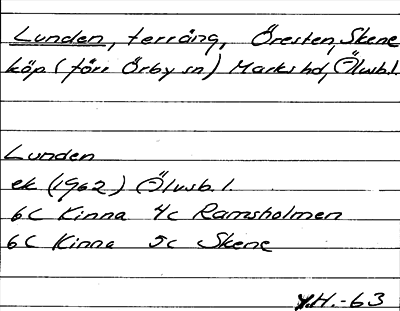 Lunden, terräng, Öresten, Skene
köp (förr Örby sn) Marks hd, Älvsb. l.
Lunden
ek (1962) Älvsb. l.
6C Kinna 4c Ramsholmen
6C Kinna 5c Skene
H.-63